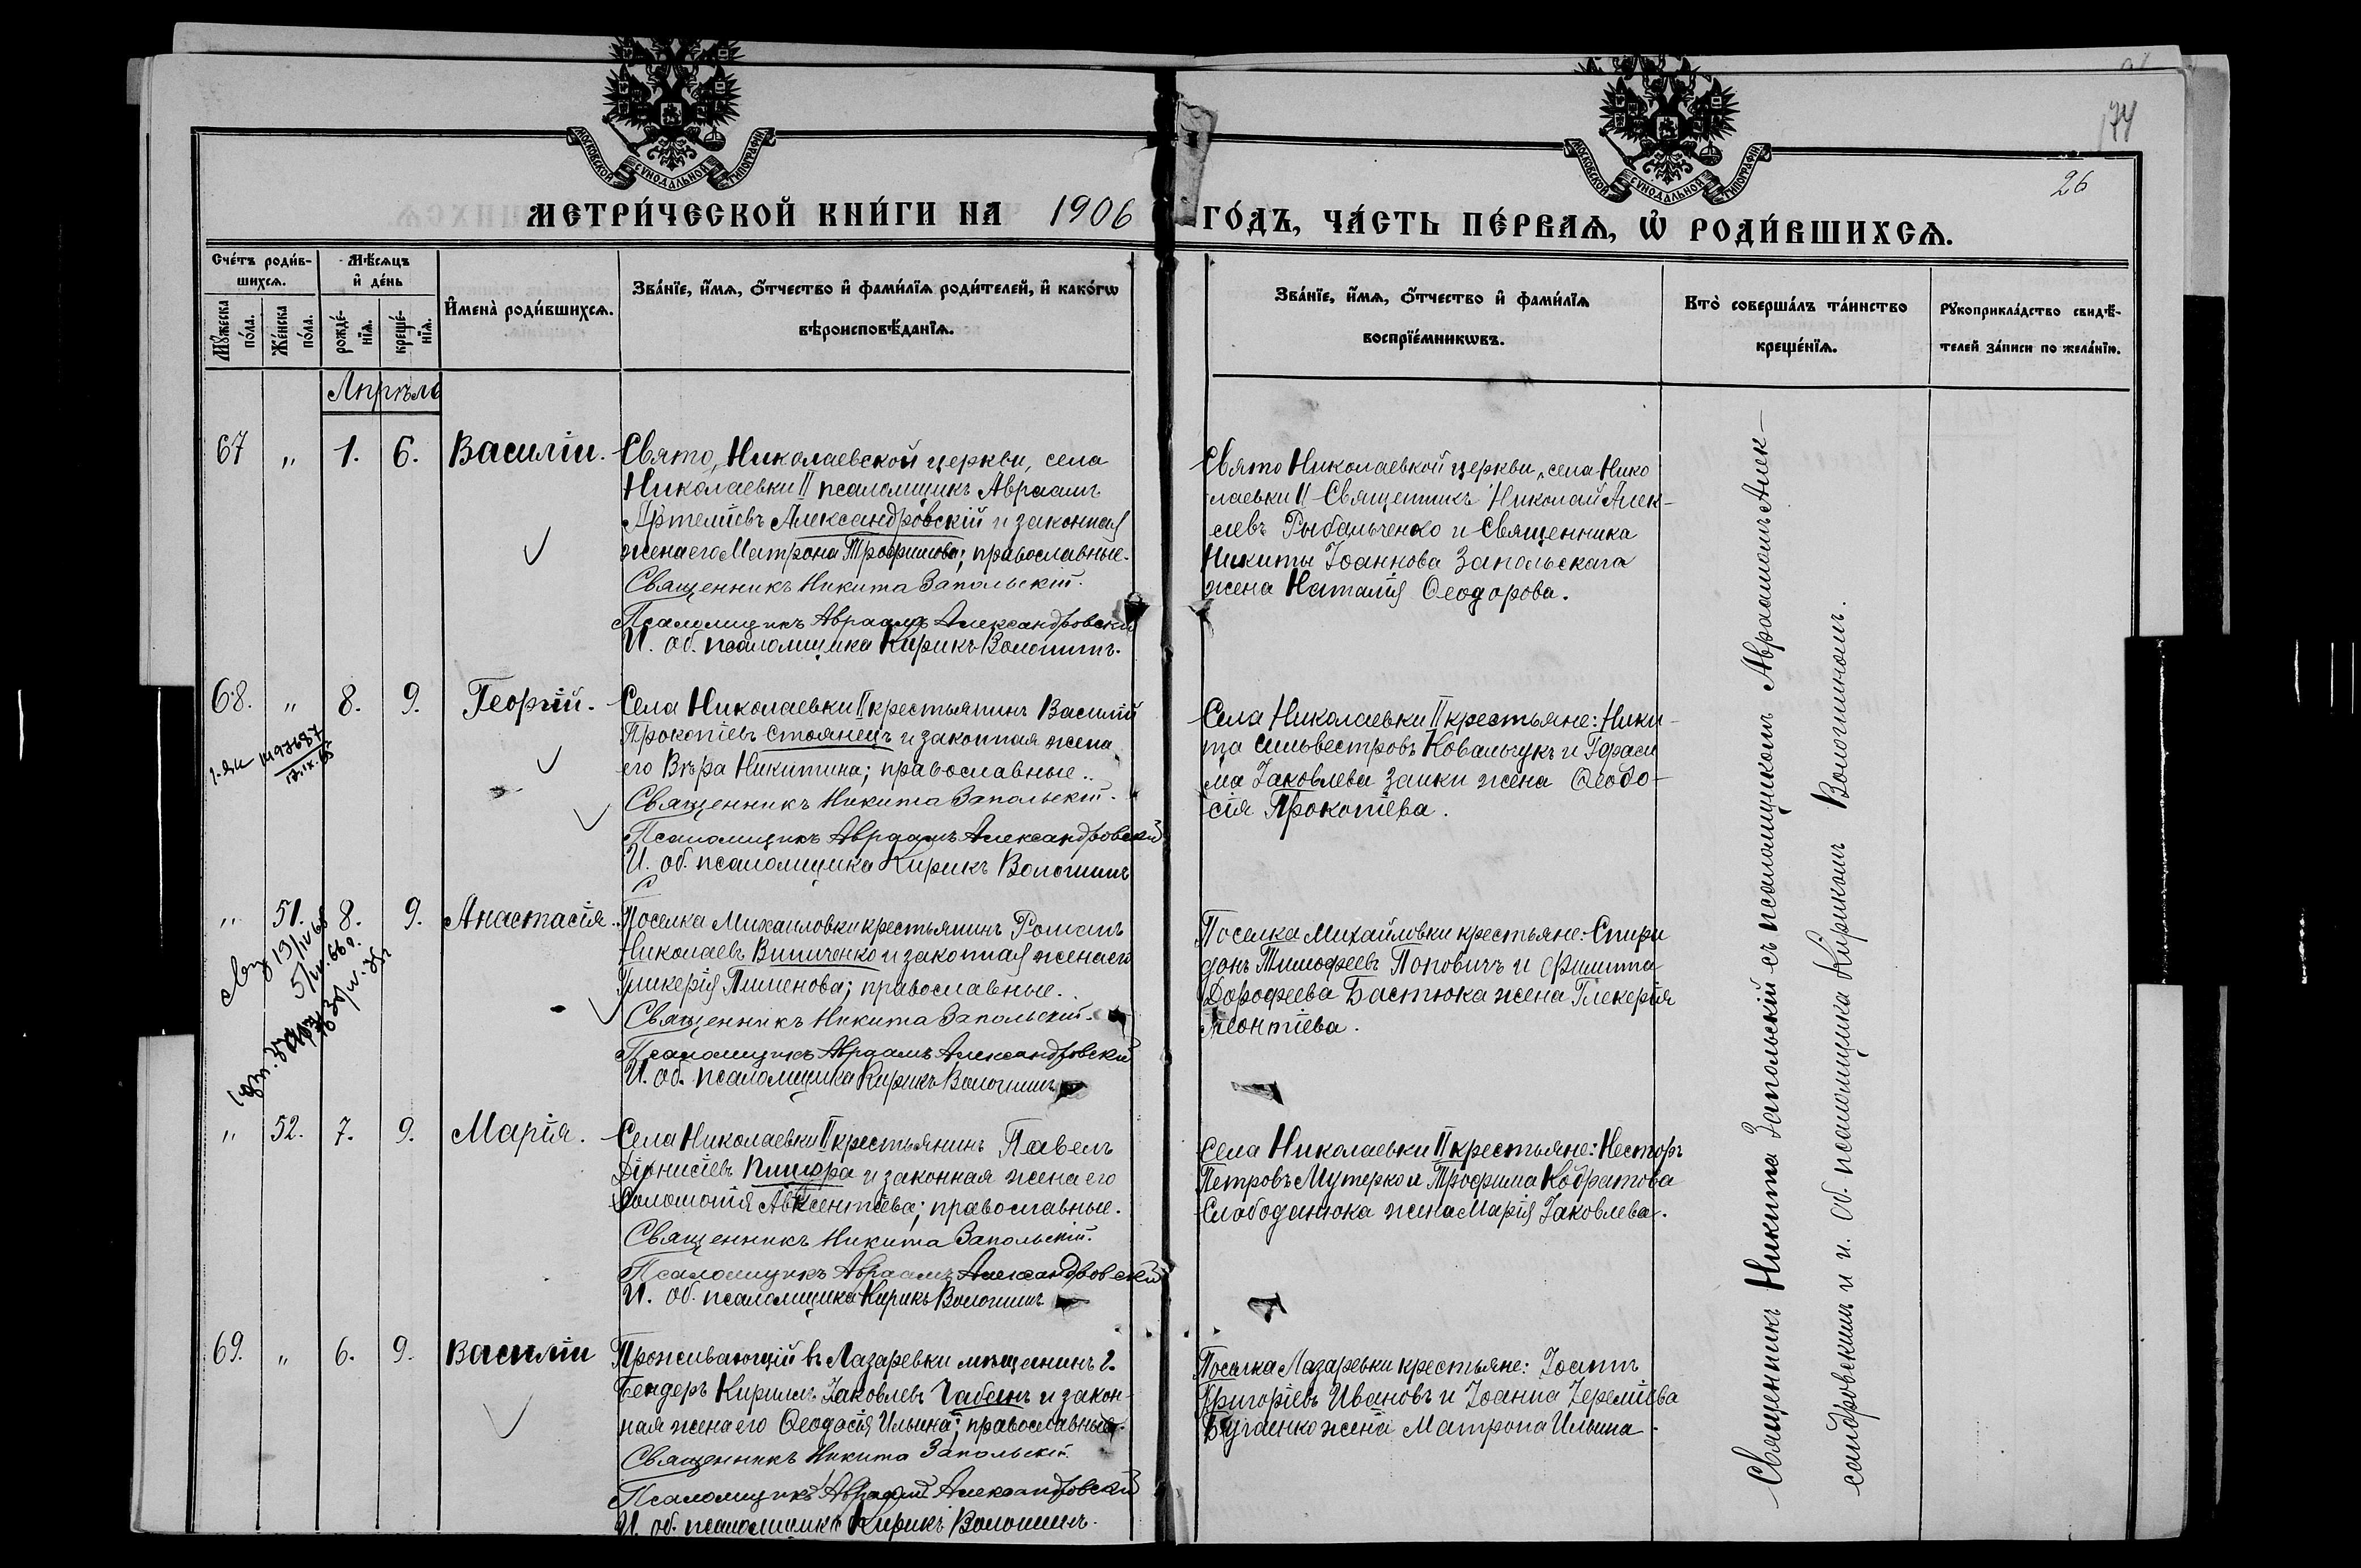 74
26
МОСКОВСКОЙ СѴНОДАЛЬНОЙ ТИПОГРАФІИ
МОСКОВСКОЙ СѴНОДАЛЬНОЙ ТИПОГРАФІИ
МЕТРИ́ЧЕСКОЙ КНИ́ГИ НА 1906 ГО́ДЪ, ЧА́СТЬ ПЕ́РВАѦ, Ѡ҆ РОДИ́ВШИХСѦ.
Сче́тъ роди́в-
шихсѧ.
Мꙋ́жеска по́ла.
Же́нска по́ла.
Мѣ́сѧцъ
и҆ де́нь
рожде́-
нїѧ.
креще́-
нїѧ.
И҆мена̀ роди́вшихсѧ.
Зва́нїе, и҆́мѧ, ѻ҆́тчество и҆ фами́лїѧ роди́телей, и҆ како́гѡ
вѣроисповѣ́данїѧ.
Зва́нїе, и҆́мѧ, ѻ҆́тчество и҆ фами́лїѧ
воспрїе́мникѡвъ.
Кто̀ соверша́лъ та́инство
креще́нїѧ.
Рꙋкоприкла́дство свидѣ́-
телей за́писи по жела́нїю.
Апрѣль
67 „ 1. 6. Василій.
Свято Николаевской церкви, села
Николаевки II псаломщикъ Авраамъ
Артеміевъ Александровскій и законная
жена его Матрона Трофимова; православные.
Священникъ Никита Запольскій.
Псаломщикъ Авраамъ Александровскій
И. об. псаломщика Кирикъ Волошинъ.
Свято Николаевкой церкви, села Нико
лаевки II Священникъ Николай Алек-
сіевъ Рыбальченко и Священника
Никиты Іоаннова Запольскаго
жена Наталія Ѳеодорова.
68. „ 8. 9. Георгій.
Села Николаевки II крестьянинъ Василій
Прокопіевъ Стоянецъ и законная жена
его Вѣра Никитина; православные.
Священникъ Никита Запольскій.
Псаломщикъ Авраамъ Александровскій
И. об. псаломщика Кирикъ Волошинъ
Села Николаевки II крестьяне: Ники-
та Сильвестровъ Ковальчукъ и Гераси
ма Іаковлева Заики жена Ѳеодо-
сія Прокопіева.
„ 51. 8. 9. Анастасія.
Поселка Михайловки крестьянинъ Романъ
Николаевъ Винниченко и законная жена его
Гликерія Пименова; православные.
Священникъ Никита Запольскій.
Псаломщикъ Авраамъ Александровскій
И. об. псаломщика Кирикъ Волошинъ
Поселка Михайловки крестьяне: Спири
донъ Тимофеевъ Поповичъ и Филиппа
Дорофеева Бастюка жена Гликерія
Леонтіева.
„ 52. 7. 9. Марія.
Села Николаевки II крестьянинъ Павелъ
Діонисіевъ и законная жена его
Соломонія Авксентіева; православные.
Священникъ Никита Запольскій.
Псаломщикъ Авраамъ Александровскій
И. об. псаломщика Кирикъ Волошинъ
Села Николаевки II крестьяне: Несторъ
Петровъ Мутерко и Трофима Кодратова
Слободанюка жена Марія Іаковлева.
69. „ 6. 9. Василій
Проживающій въ Лазаревки мѣщанинъ г.
Бендеръ Кириллъ Іаковлевъ и закон-
ная жена его Ѳеодосія Ильина; православные.
Священникъ Никита Запольскій.
Псаломщикъ Авраамъ Александровскій
И. об. псаломщика Кирикъ Волошинъ.
Поселка Лазаревки крестьяне: Іоаннъ
Григоріевъ Ивановъ и Іоанна Іереміева
Бугаенко жена Матрона Ильина.
Священникъ Никита Запольскій съ псаломщикомъ Авраамомъ Алек-
сандровскимъ и и. об. псаломщика Кирикомъ Волошиномъ.